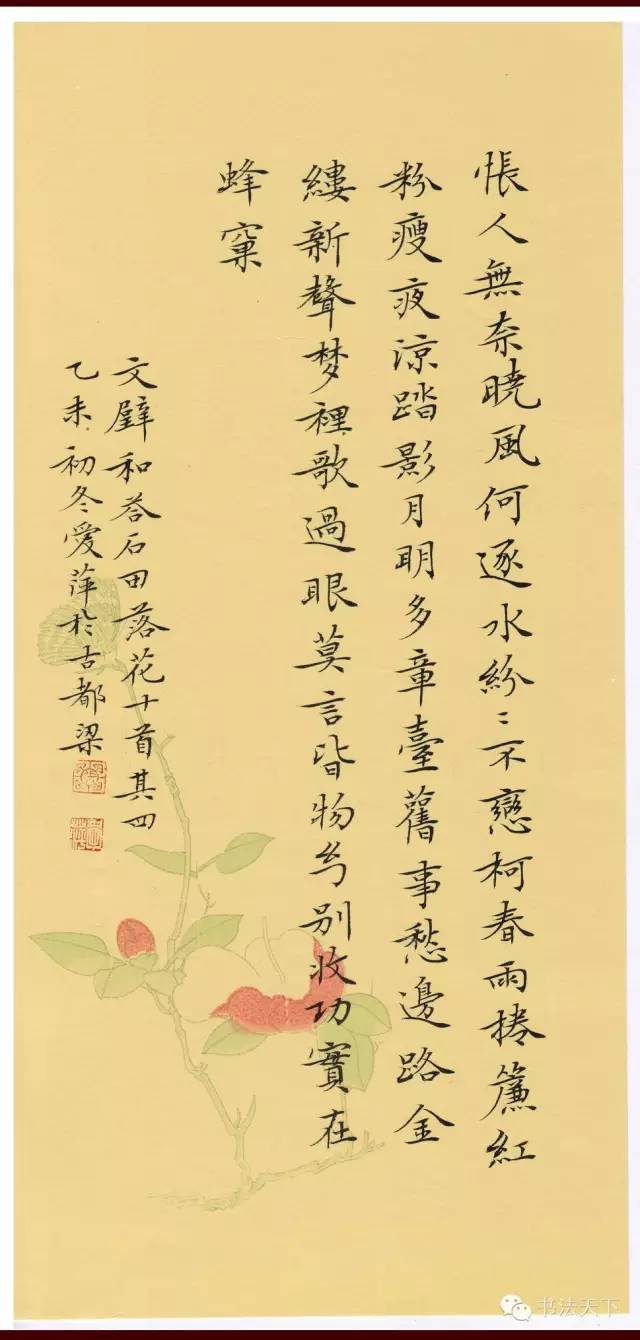 悵人無奈曉風何逐水紛〻不戀柯春雨捲簾紅
粉瘦夜涼踏影月明多章臺舊事愁邊路金
縷新聲梦裡歌過眼莫言皆物幻別收功實在
蜂窠
文壁和答石田落花十首其四
乙未初冬愛萍於古都梁
书法天下